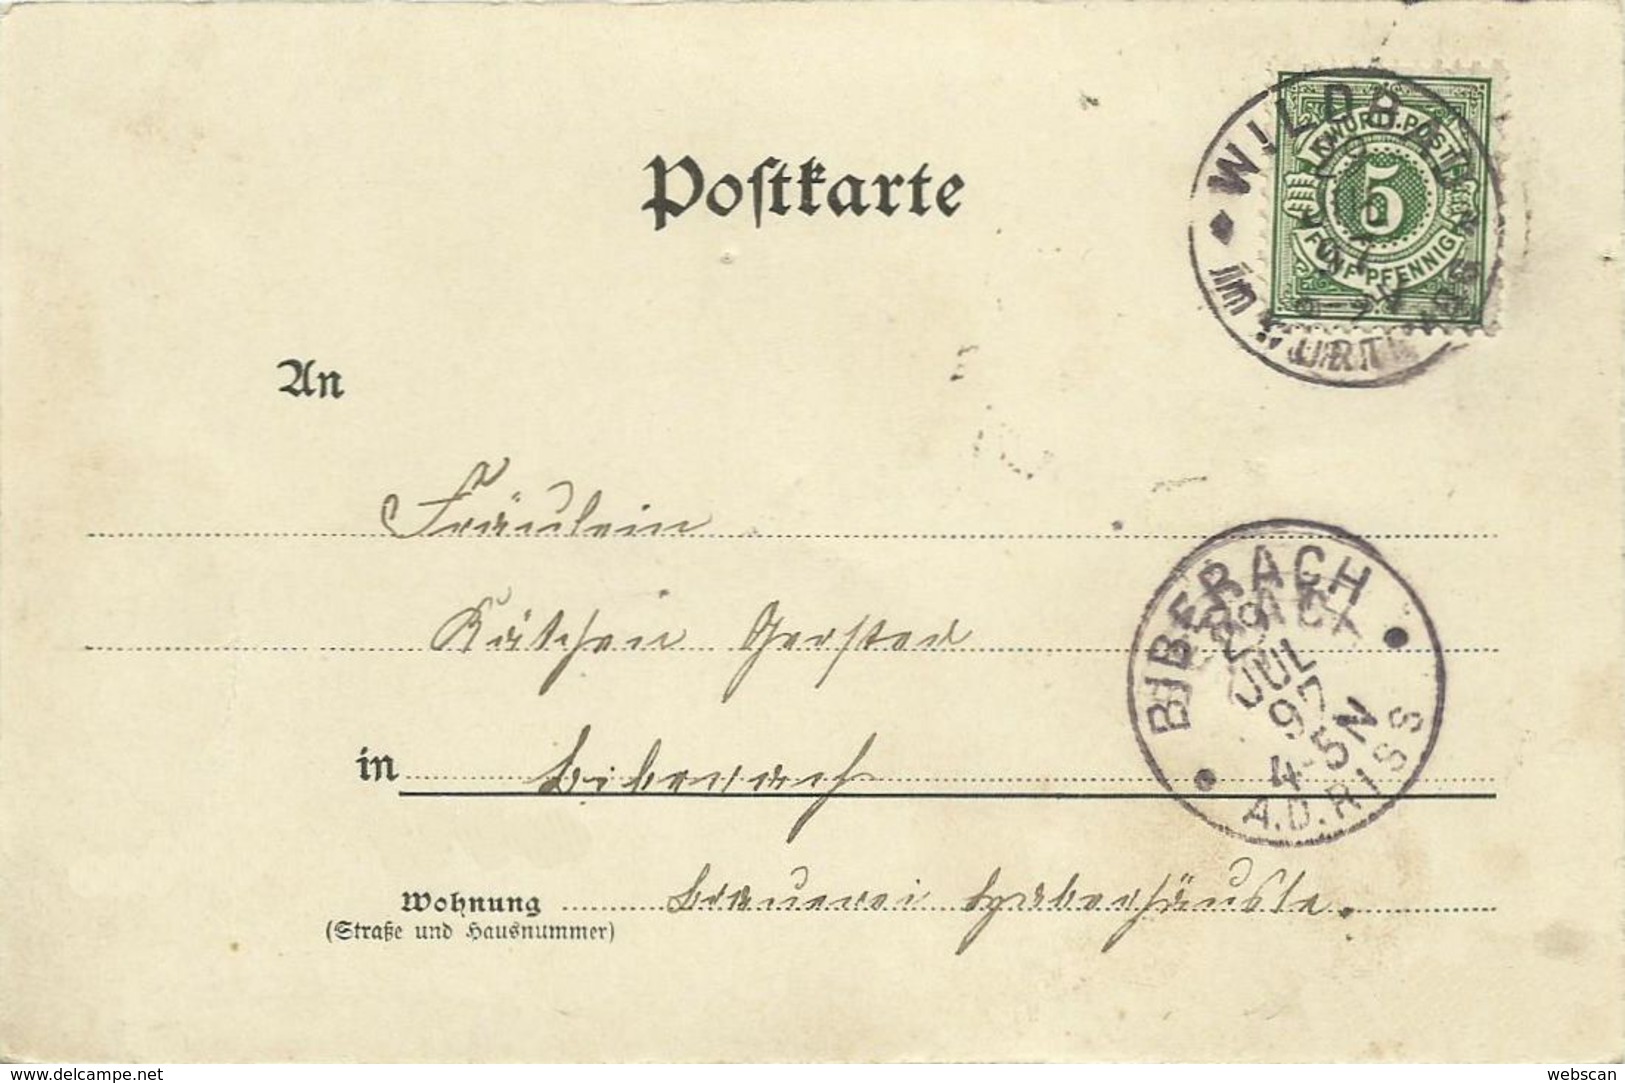 Postkarte
WILDBAD
K.WÜRTT.POST
5
FÜNF PFENNIG
im
An
Fräulein
Kätchen Gerster
BIBERACH
29
JUL
97
4-5N
A.D.RISS
in Biberach
Wohnung Brauerei Haberhäusle.
(Straße und Hausnummer)
www.delcampe.net
webscan